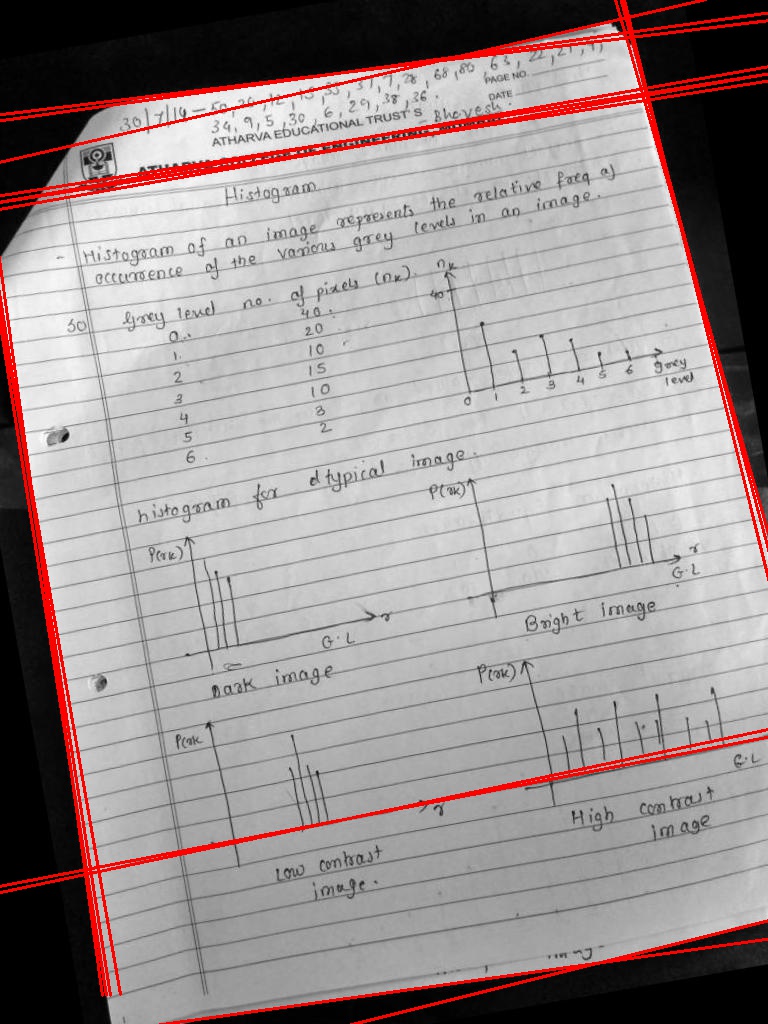 30/7/19 - 50, 26, 12, 15, 35, 37, 7, 28, 68, 80, 63, 22, 21, 9,
34, 9, 5, 30, 6, 29, 38, 36. PAGE NO.
DATE
ATHARVA EDUCATIONAL TRUST'S - Bhavesh.
Histogram
- Histogram of an image represents the relative freq of
occurrence of the various grey levels in an image.
SO grey level no. of pixels (nk).
0 40
1 20
2 10
3 15
4 10
5 3
6 2
nk
40
0 1 2 3 4 5 6 grey
level
histogram for typical image.
P(rk)
r
G.L
Dark image
P(rk)
r
G.L
Bright image
P(rk
r
Low contrast
image.
P(rk)
G.L
High contrast
image